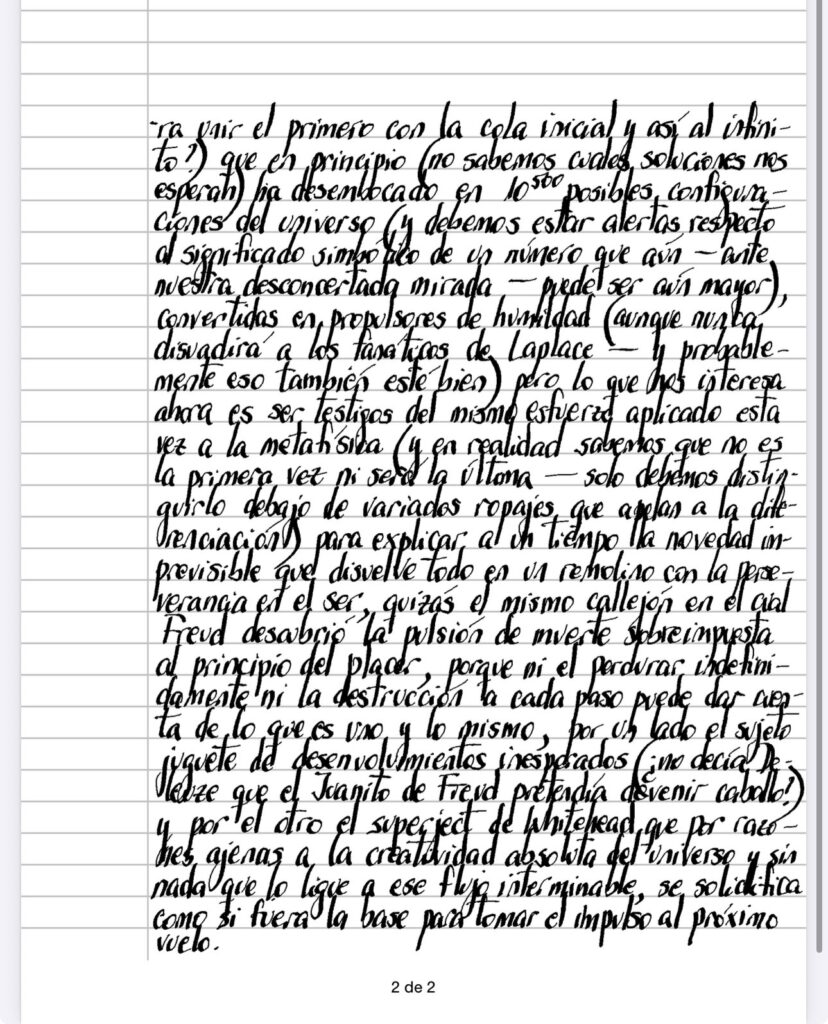 -ra unir el primero con la cola inicial y así al infini-
to?) que en principio (no sabemos cuales soluciones nos
esperan) ha desembocado en 10⁵⁰⁰ posibles configura-
ciones del universo (y debemos estar alertas respecto
al significado simbólico de un número que aún — ante
nuestra desconcertada mirada — puede ser aún mayor),
convertidas en propulsores de humildad (aunque nunca
disuadirá a los fanáticos de Laplace — y probable-
mente eso también esté bien) pero lo que nos interesa
ahora es ser testigos del mismo esfuerzo aplicado esta
vez a la metafísica (y en realidad sabemos que no es
la primera vez ni será la última — solo debemos distin-
guirlo debajo de variados ropajes que apelan a la dife-
renciación) para explicar a un tiempo la novedad im-
previsible que disuelve todo en un remolino con la perse-
verancia en el ser, quizás el mismo callejón en el cual
Freud descubrió la pulsión de muerte sobreimpuesta
al principio del placer, porque ni el perdurar indefini-
damente ni la destrucción a cada paso puede dar cuen-
ta de lo que es uno y lo mismo, por un lado el sujeto
juguete de desenvolvimientos inesperados (¿no decía De-
leuze que el Juanito de Freud pretendía devenir caballo?)
y por el otro el superject de Whitehead que por razo-
nes ajenas a la creatividad absoluta del universo y sin
nada que lo ligue a ese flujo interminable, se solidifica
como si fuera la base para tomar el impulso al próximo
vuelo.
2 de 2